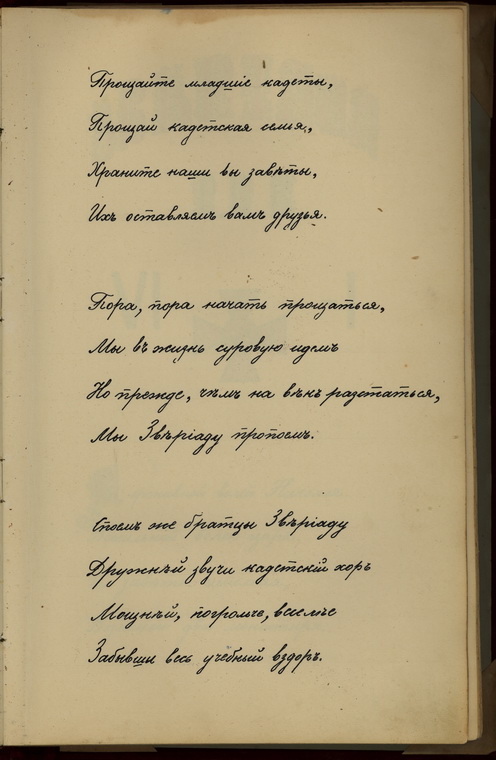 Прощайте младшіе кадеты,
Прощай кадетская семья,
Храните наши вы завѣты,
Ихъ оставляемъ вамъ друзья.
Пора, пора начать прощаться,
Мы въ жизнь суровую идемъ
Но прежде, чѣмъ на вѣкъ разстаться,
Мы Звѣріаду пропоемъ.
Споемъ же братцы Звѣріаду
Дружнѣй звучи кадетскій хоръ
Мощнѣй, погромче, веселѣе
Забывши весь учебный вздоръ.